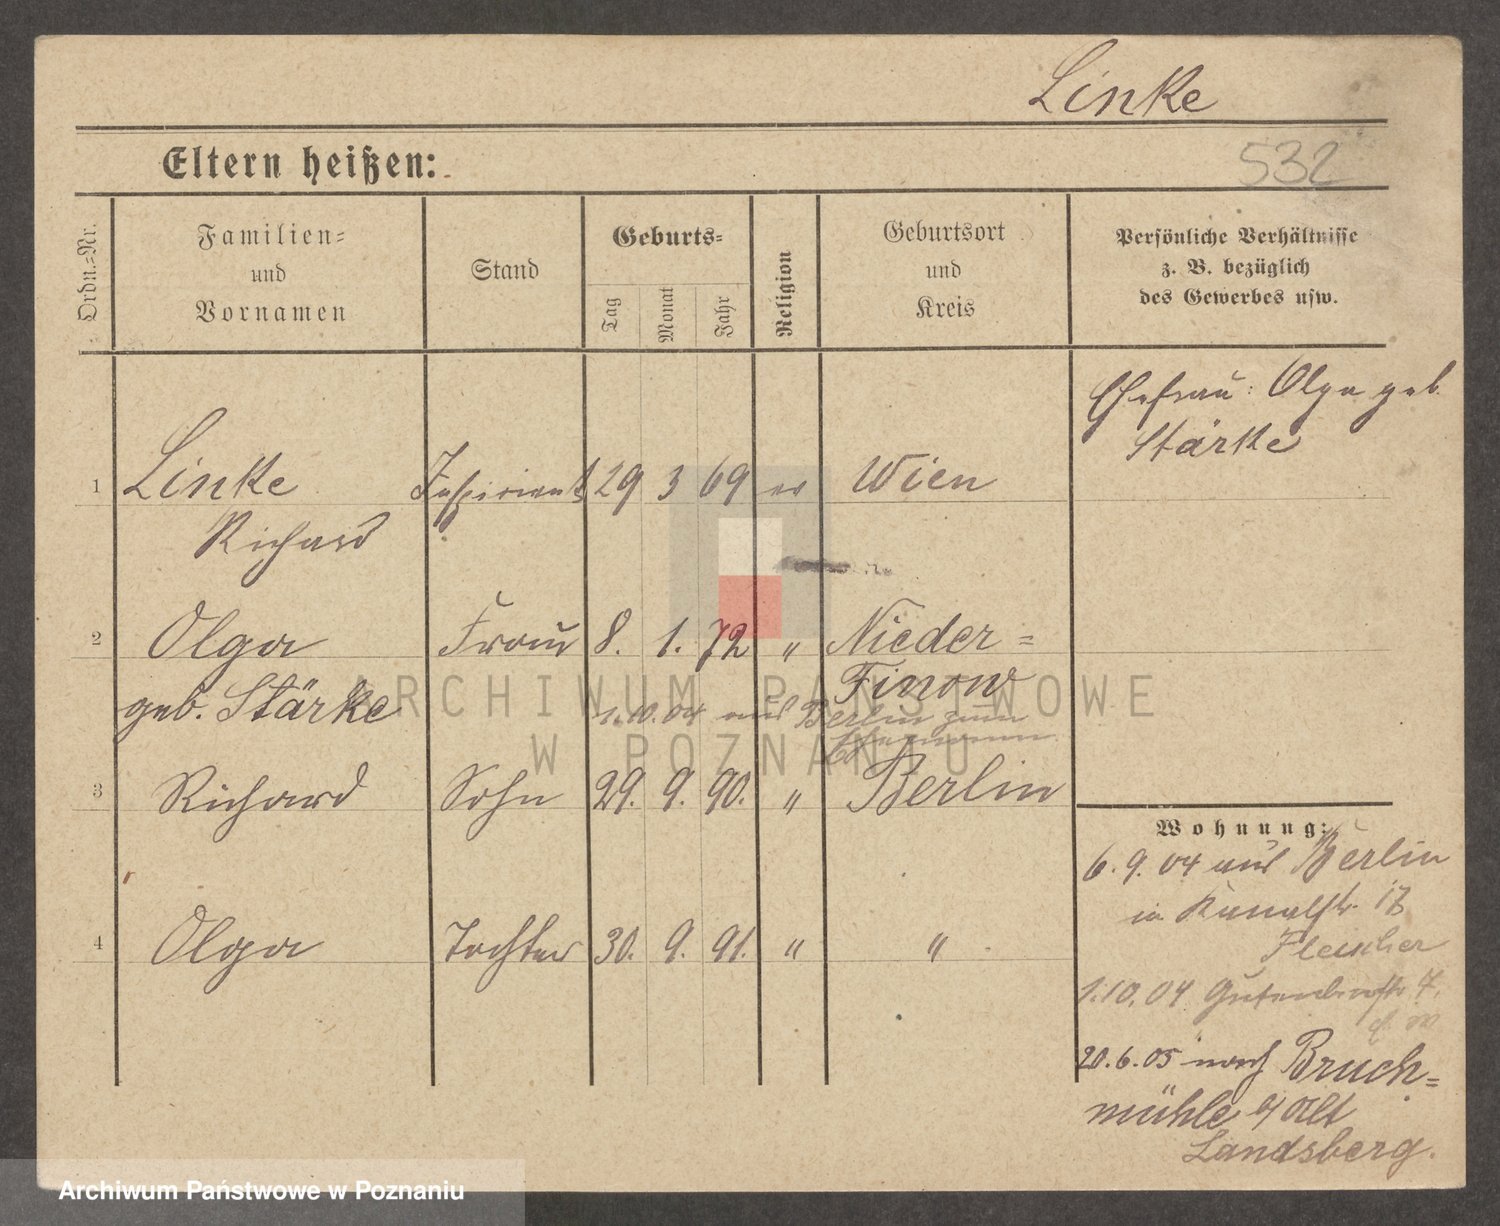 Linke
Eltern heißen:
532
Ordn.-Nr.
Familien-
und
Vornamen
Stand
Geburts-
Tag
Monat
Jahr
Religion
Geburtsort
und
Kreis
Persönliche Verhältnisse
z. B. bezüglich
des Gewerbes usw.
Ehefrau: Olga geb.
Stärke
1 Linke 29 3 69 ev Wien
Richard
2 Olga Frau 8. 1. 72 " Nieder=
geb. Stärke Finow
1.10.04 aus Berlin zum
Ehemann
3 Richard Sohn 29. 9. 90. " Berlin
4 Olga Tochter 30. 9. 91. " "
Wohnung:
6.9.04 aus Berlin
in Kanalstr. 17
Fleischer
1.10.04 Gutenbergstr 7.
20.6.05 nach Bruch=
mühle b/ Alt
Landsberg.
ARCHIWUM PAŃSTWOWE
W POZNANIU
Archiwum Państwowe w Poznaniu